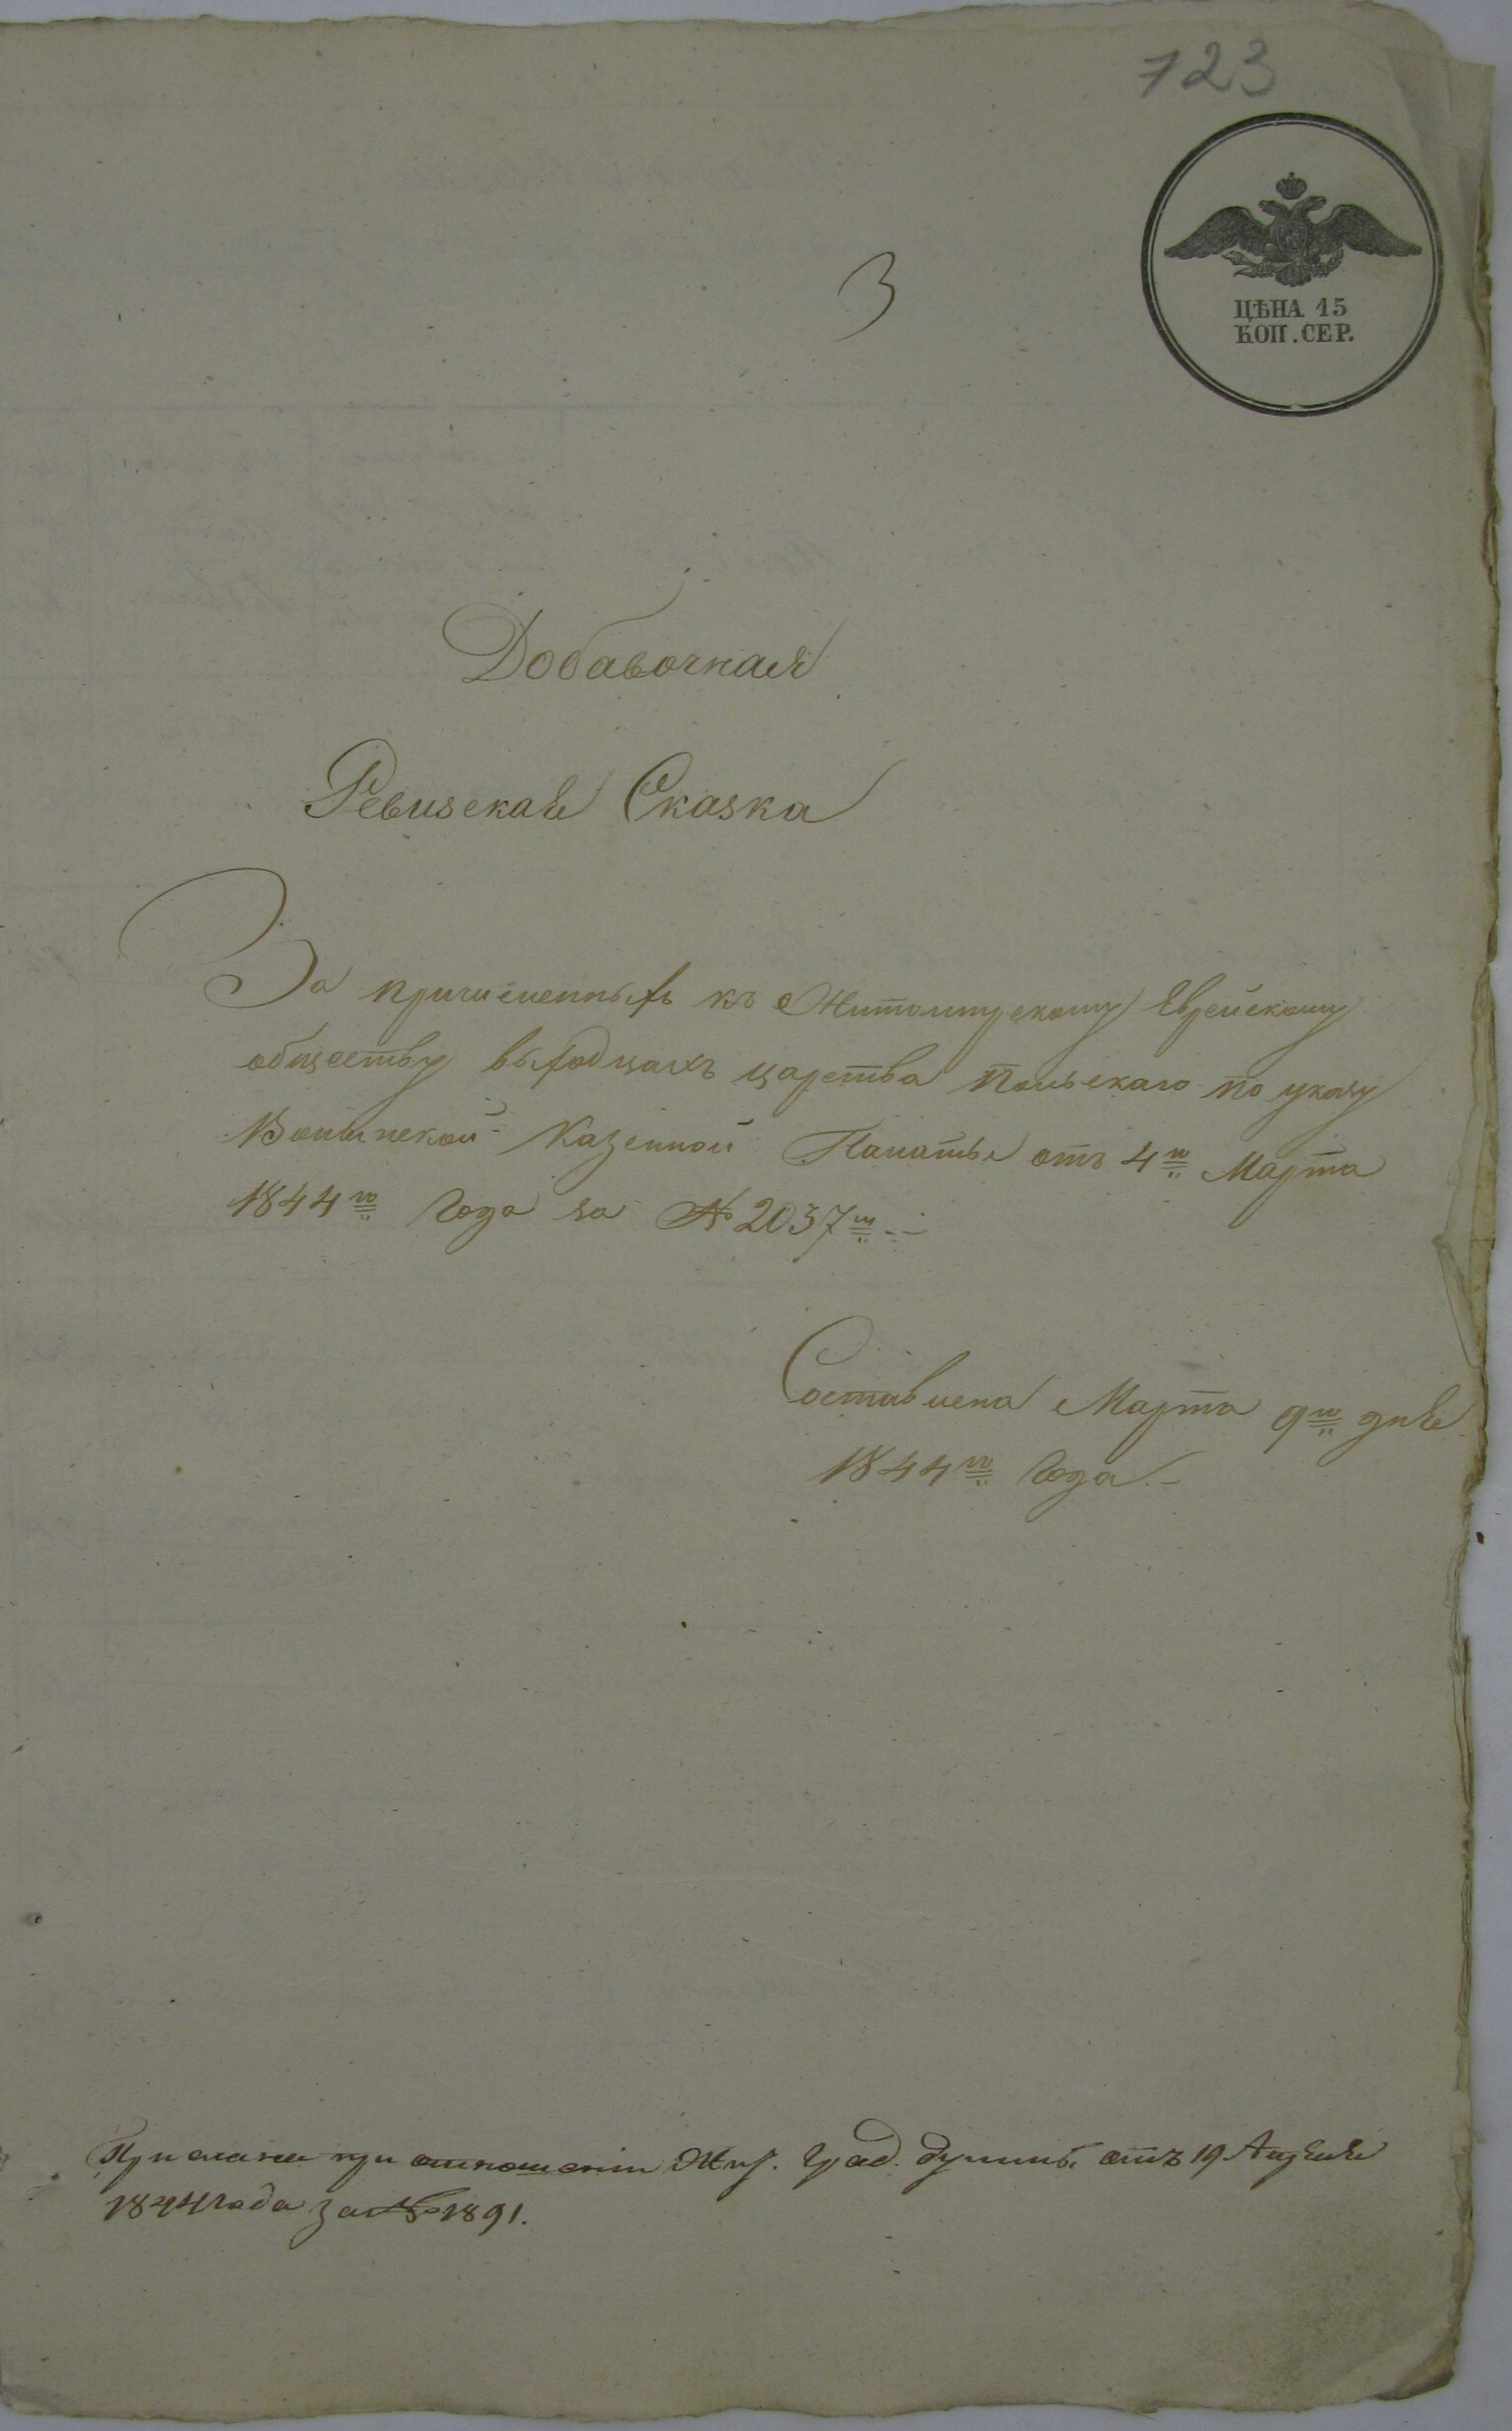 723
3
ЦѢНА 15
КОП. СЕР.
Добавочная
Ревизская Сказка
За причисленныхъ къ Житомирскому Еврейскому
обществу выходцахъ царства Польскаго по указу
Волынской Казенной Палаты отъ 4го Марта
1844го Года за № 2037м
Составлена Марта 9го дня
1844го Года
Прислана при отношеніи Жит. Град. думы отъ 19 Апреля
1844 года за № 1891.